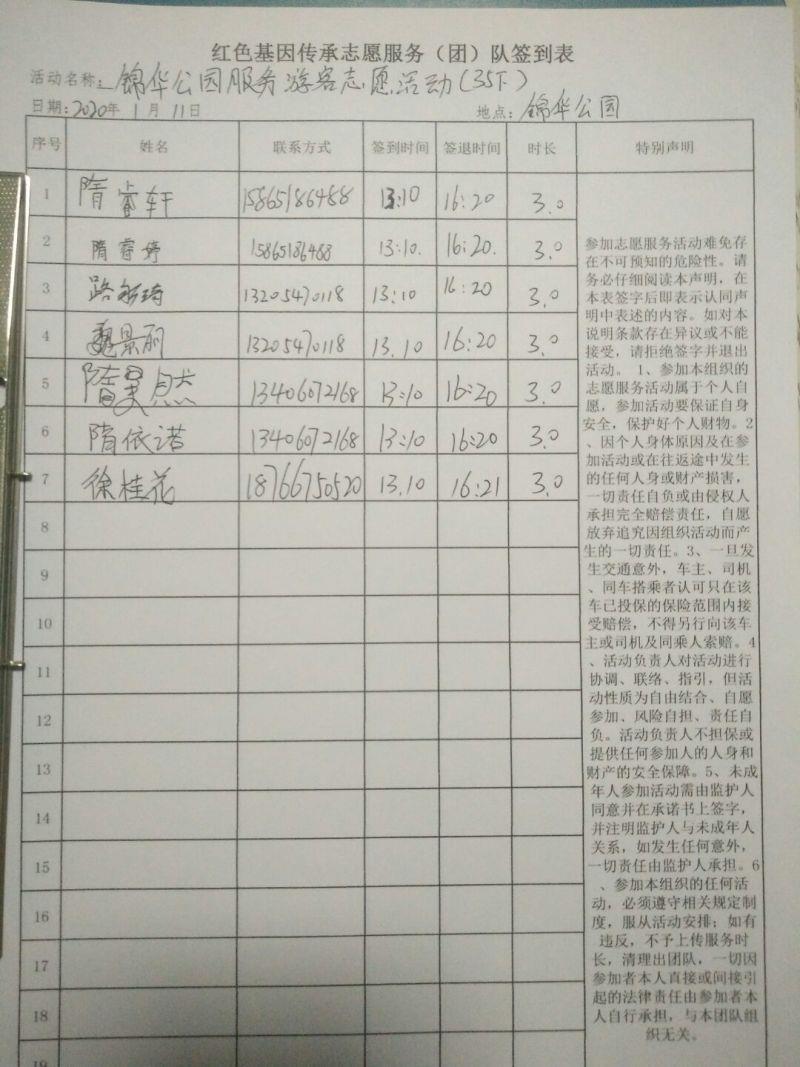 红色基因传承志愿服务（团）队签到表
活动名称：锦华公园服务游客志愿活动(35下)
日期：2020年 1月 11日 地点：锦华公园
序号 姓名 联系方式 签到时间 签退时间 时长 特别声明
1 隋睿轩 15865186488 13:10 16:20 3.0
2 隋睿婷 15865186488 13:10. 16:20. 3.0
3 路 琦 13205470118 13:10 16:20 3.0
4 魏景丽 13205470118 13.10 16:20 3.0
5 隋昊然 13406072168 13:10 16:20 3.0
6 隋依诺 13406072168 13:10 16:20 3.0
7 徐桂花 18766750520 13.10 16:21 3.0
8
9
10
11
12
13
14
15
16
17
18
19
参加志愿服务活动难免存
在不可预知的危险性。请
务必仔细阅读本声明，在
本表签字后即表示认同声
明中表述的内容。如对本
说明条款存在异议或不能
接受，请拒绝签字并退出
活动。 1、参加本组织的
志愿服务活动属于个人自
愿，参加活动要保证自身
安全，保护好个人财物。2
、因个人身体原因及在参
加活动或在往返途中发生
的任何人身或财产损害，
一切责任自负或由侵权人
承担完全赔偿责任，自愿
放弃追究因组织活动而产
生的一切责任。3、一旦发
生交通意外，车主、司机
、同车搭乘者认可只在该
车已投保的保险范围内接
受赔偿，不得另行向该车
主或司机及同乘人索赔。4
、活动负责人对活动进行
协调、联络、指引，但活
动性质为自由结合、自愿
参加、风险自担、责任自
负。活动负责人不担保或
提供任何参加人的人身和
财产的安全保障。5、未成
年人参加活动需由监护人
同意并在承诺书上签字，
并注明监护人与未成年人
关系，如发生任何意外，
一切责任由监护人承担。6
、参加本组织的任何活
动，必须遵守相关规定制
度，服从活动安排；如有
违反，不予上传服务时
长，清理出团队，一切因
参加者本人直接或间接引
起的法律责任由参加者本
人自行承担，与本团队组
织无关。